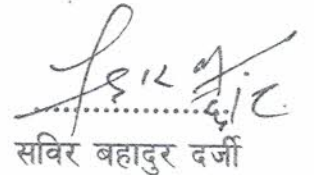 सविर बहादुर दर्जी